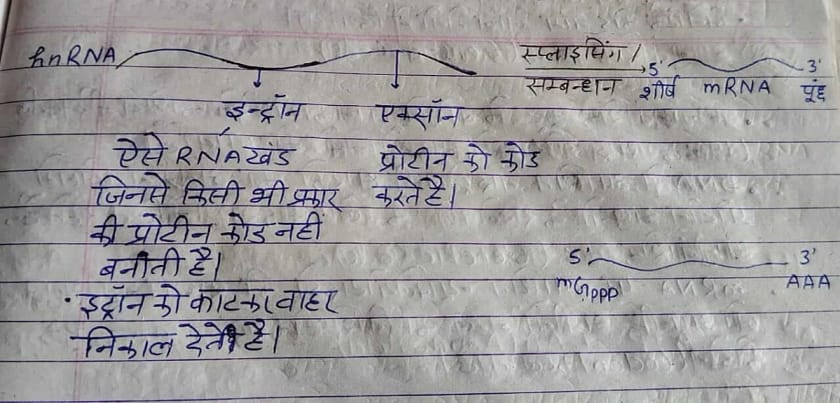 hnRNA स्प्लाइसिंग/
सम्बन्धान 5' शीर्ष mRNA 3' पूंछ
इन्ट्रॉन एक्सॉन
ऐसे RNA खंड प्रोटीन को कोड
जिनसे किसी भी प्रकार करते है।
की प्रोटीन कोड नहीं
बनाती है।
5' 3'
mGppp AAA
· इट्रॉन को काटकर बाहर
निकाल देते है।